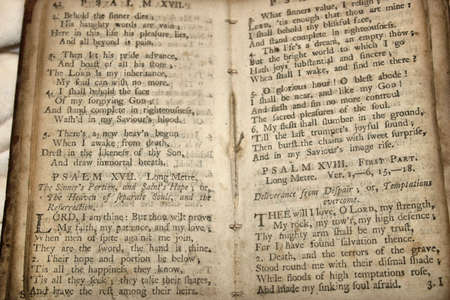 PSALM XVII.
2. Behold the sinner dies,
His haughty words are vain;
Here in this life his pleasure lies,
And all beyond is pain.
3. Then let his pride advance,
And boast of all his store;
The LORD is my inheritance,
My soul can wish no more.
4. I shall behold the face
Of my forgiving GOD;
And stand complete in righteousness,
Wash'd in my Saviour's blood.
5. There's a new heav'n begun
When I awake from death,
Drest in the likeness of thy Son,
And draw immortal breath.
PSALM XVII. Long Metre.
The Sinner's Portion, and Saint's Hope; or,
The Heaven of separate Souls, and the
Resurrection.
LORD, I am thine: But thou wilt prove
My faith, my patience, and my love,
When men of spite against me join,
They are the sword, the hand is thine.
2. Their hope and portion lie below;
'Tis all the happiness they know,
'Tis all they seek; they take their shares,
And leave the rest among their heirs.
What sinners value, I resign;
'tis enough that thou art mine:
I shall behold thy blissful face,
And stand complete in righteousness.
This life's a dream, an empty show;
But the bright world to which I go
Hath joys substantial and sincere;
When shall I wake, and find me there?
5. O glorious hour! O blest abode!
I shall be near, and like my God!
And flesh and sin no more controul
The sacred pleasures of the soul.
6. My flesh shall slumber in the ground,
'Till the last trumpet's joyful sound;
Then burst the chains with sweet surprise,
And in my Saviour's image rise.
PSALM XVIII. FIRST PART.
Long Metre. Ver. 1,—6, 15,—18.
Deliverance from Despair; or, Temptations
overcome.
THEE will I love, O LORD, my strength,
My rock, my tow'r, my high defence;
Thy mighty arm shall be my trust,
For I have found salvation thence.
2. Death, and the terrors of the grave,
Stood round me with their dismal shade;
While floods of high temptations rose,
And made my sinking soul afraid.
3. I